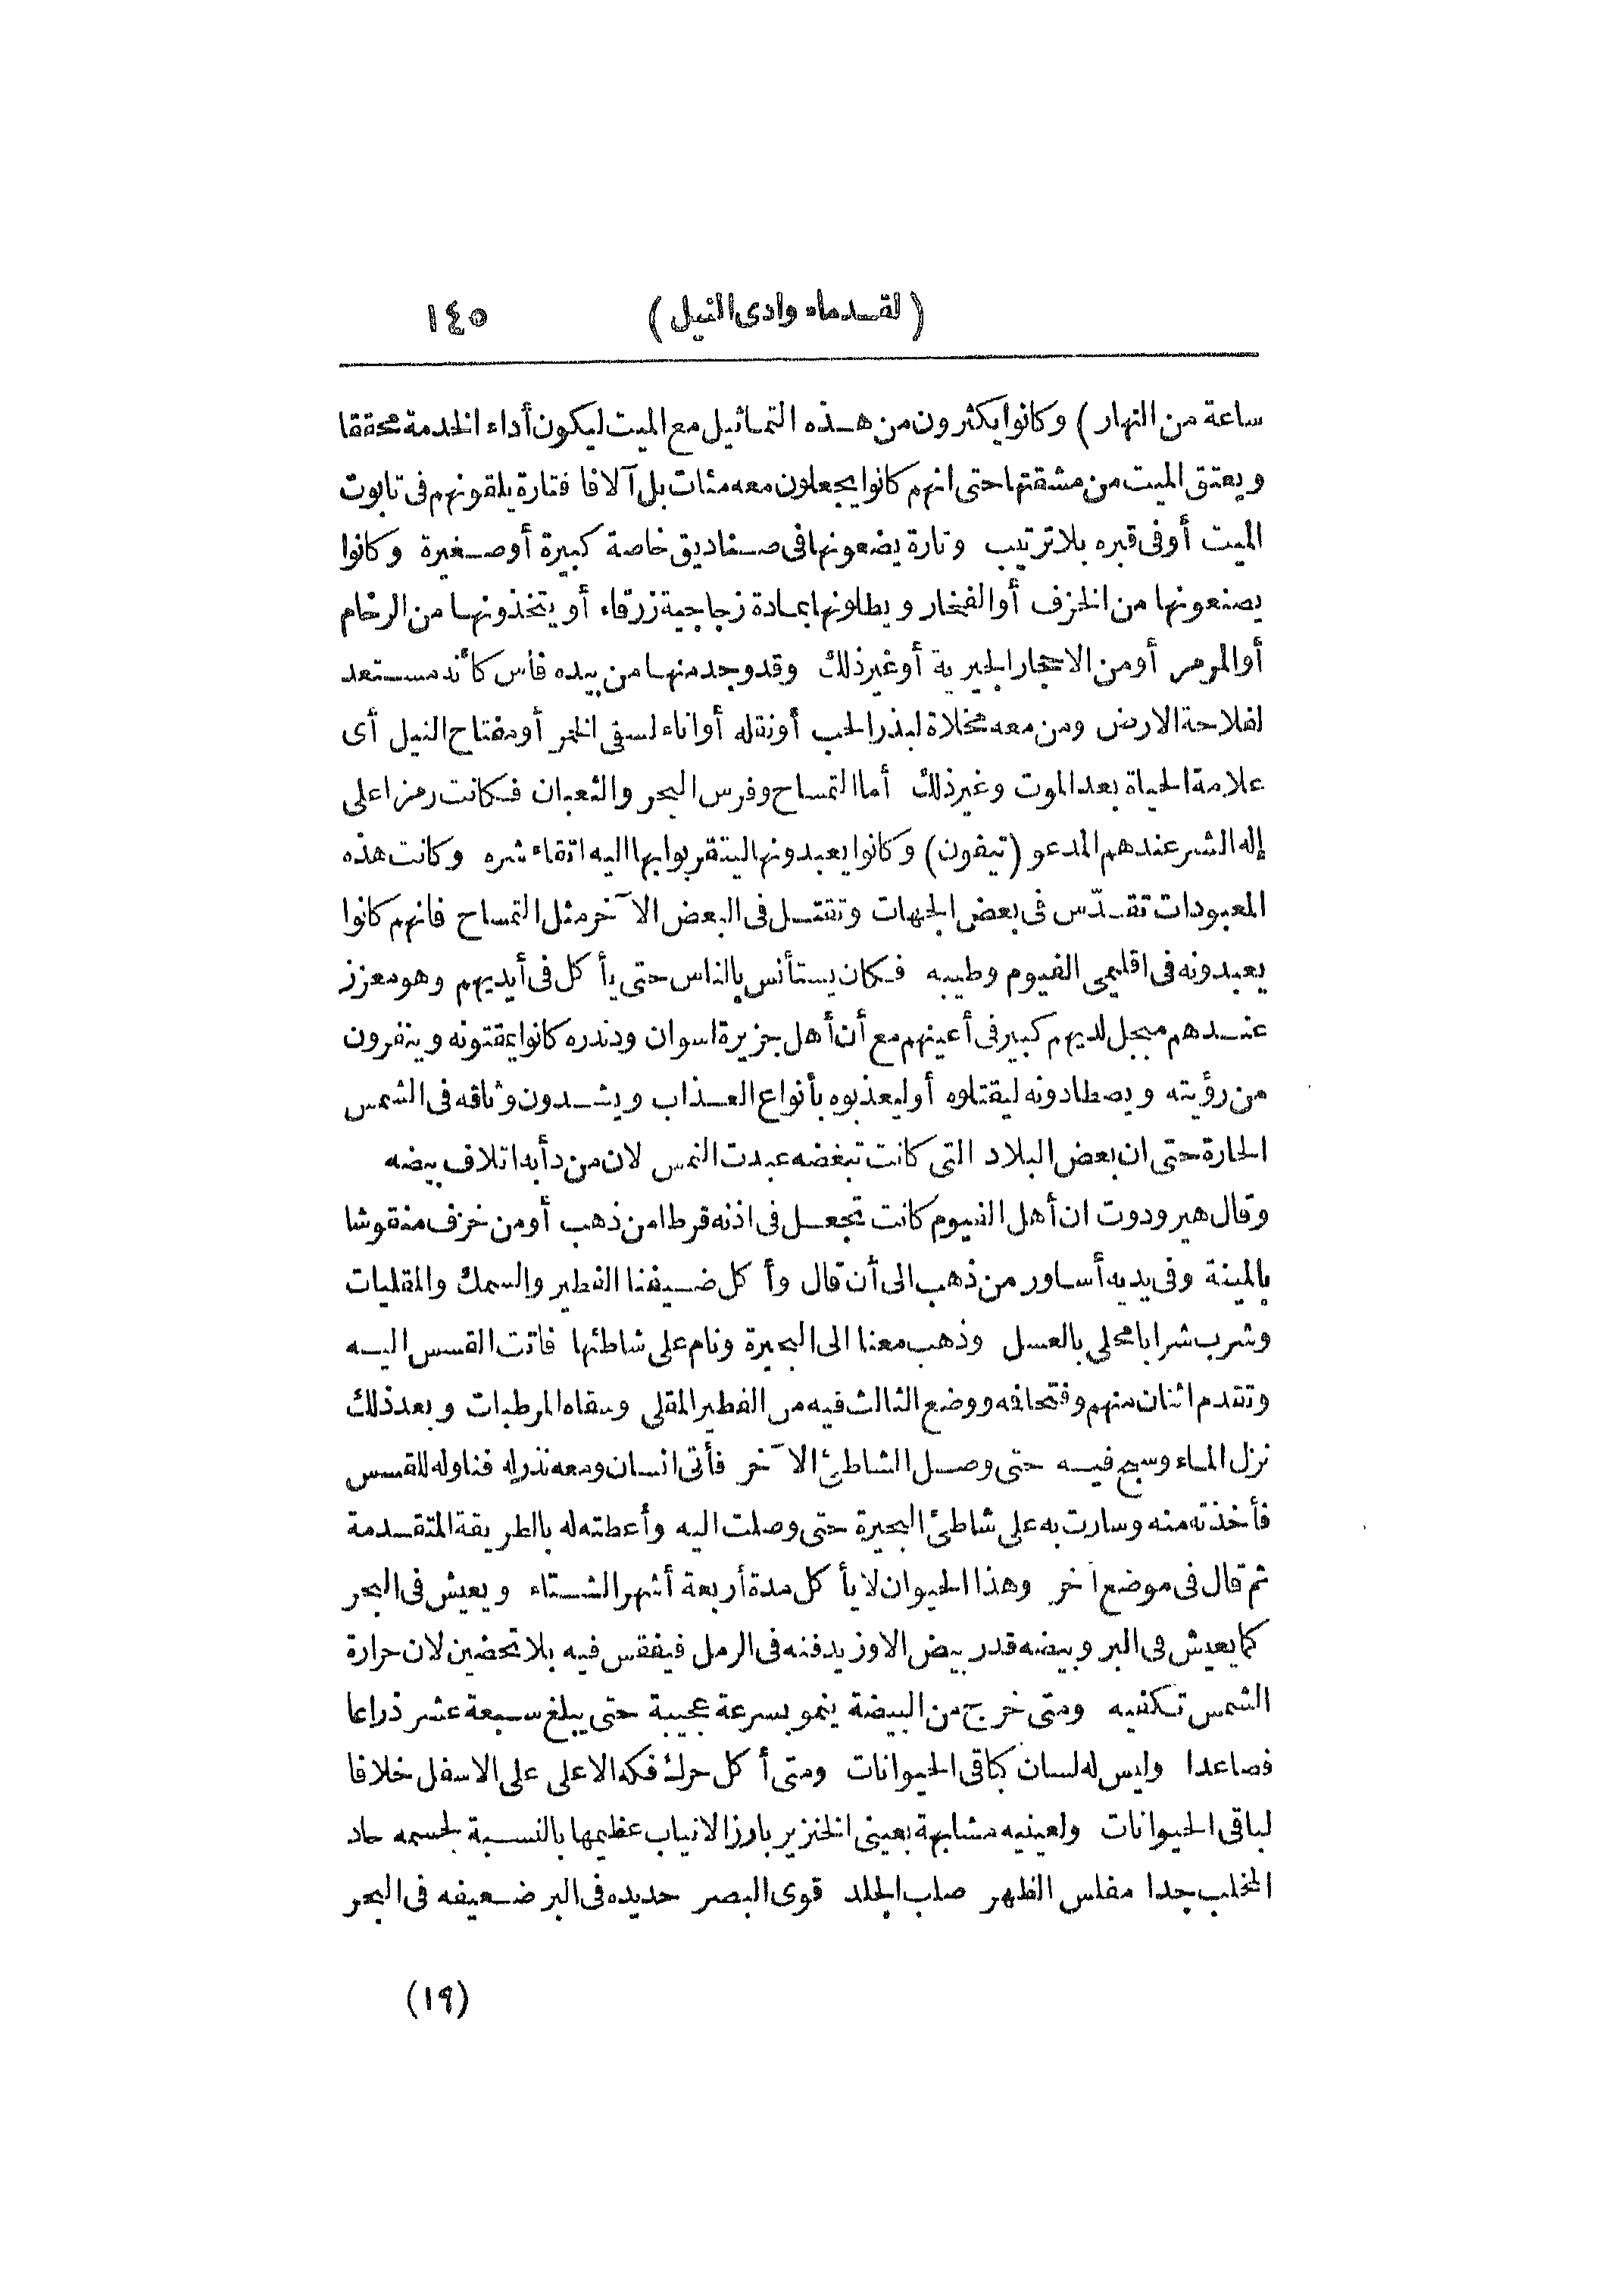 (لقدماء وادى النيل) ١٤٥
ساعة من النهار) وكانوا يكثرون من هذه التماثيل مع الميت ليكون أداء الخدمة محققا
ويعتق الميت من مشقتها حتى انهم كانوا يجعلون معه مئات بل آلافا فتارة يلقونهم فى تابوت
الميت أو فى قبره بلا ترتيب وتارة يضعونها فى صناديق خاصة كبيرة أو صغيرة وكانوا
يصنعونها من الخزف أو الفخار ويطلونها بمادة زجاجية زرقاء أو يتخذونها من الرخام
أو المرمر أو من الاحجار الجيرية أو غير ذلك وقد وجد منها من بيده فأس كأنه مستعد
لفلاحة الارض ومن معه مخلاة لبذر الحب أو نقله أو اناء لسقى الخمر أو مفتاح النيل أى
علامة الحياة بعد الموت وغير ذلك أما التمساح وفرس البحر والثعبان فكانت رمزا على
إله الشر عندهم المدعو (تيفون) وكانوا يعبدونها ليتقربوا بها اليه اتقاء شره وكانت هذه
المعبودات تقدّس فى بعض الجهات وتقتل فى البعض الآخر مثل التمساح فانهم كانوا
يعبدونه فى اقليمى الفيوم وطيبه فكان يستأنس بالناس حتى يأكل فى أيديهم وهو معزز
عندهم مبجل لديهم كبير فى أعينهم مع أن أهل جزيرة اسوان ودندره كانوا يمقتونه وينفرون
من رؤيته ويصطادونه ليقتلوه أو ليعذبوه بأنواع العذاب ويشدون وثاقه فى الشمس
الحارة حتى ان بعض البلاد التى كانت تبغضه عبدت النمس لان من دأبه اتلاف بيضه
وقال هيرودوت ان أهل الفيوم كانت تجعل فى اذنه قرطا من ذهب أو من خزف منقوشا
بالمينة وفى يديه أساور من ذهب الى أن قال وأكل ضيفنا الفطير والسمك والمقليات
وشرب شرابا محلى بالعسل وذهب معنا الى البحيرة ونام على شاطئها فاتت القسس اليه
وتقدم اثنان منهم وفتحا فه ووضع الثالث فيه من الفطير المقلى وسقاه المرطبات وبعد ذلك
نزل الماء وسبح فيه حتى وصل الشاطئ الآخر فأتى انسان ومعه نذر له فناوله للقسس
فأخذته منه وسارت به على شاطئ البحيرة حتى وصلت اليه وأعطته له بالطريقة المتقدمة
ثم قال فى موضع اخر وهذا الحيوان لا يأكل مدة أربعة أشهر الشتاء ويعيش فى البحر
كما يعيش فى البر وبيضه قدر بيض الاوز يدفنه فى الرمل فيفقس فيه بلا تحضين لان حرارة
الشمس تكفيه ومتى خرج من البيضة ينمو بسرعة عجيبة حتى يبلغ سبعة عشر ذراعا
فصاعدا وليس له لسان كباقى الحيوانات ومتى أكل حرك فكه الاعلى على الاسفل خلافا
لباقى الحيوانات ولعينيه مشابهة بعينى الخنزير بارز الانياب عظيمها بالنسبة لجسمه حاد
المخلب جدا مفلس الظهر صلب الجلد قوى البصر حديده فى البر ضعيفه فى البحر
(١٩)